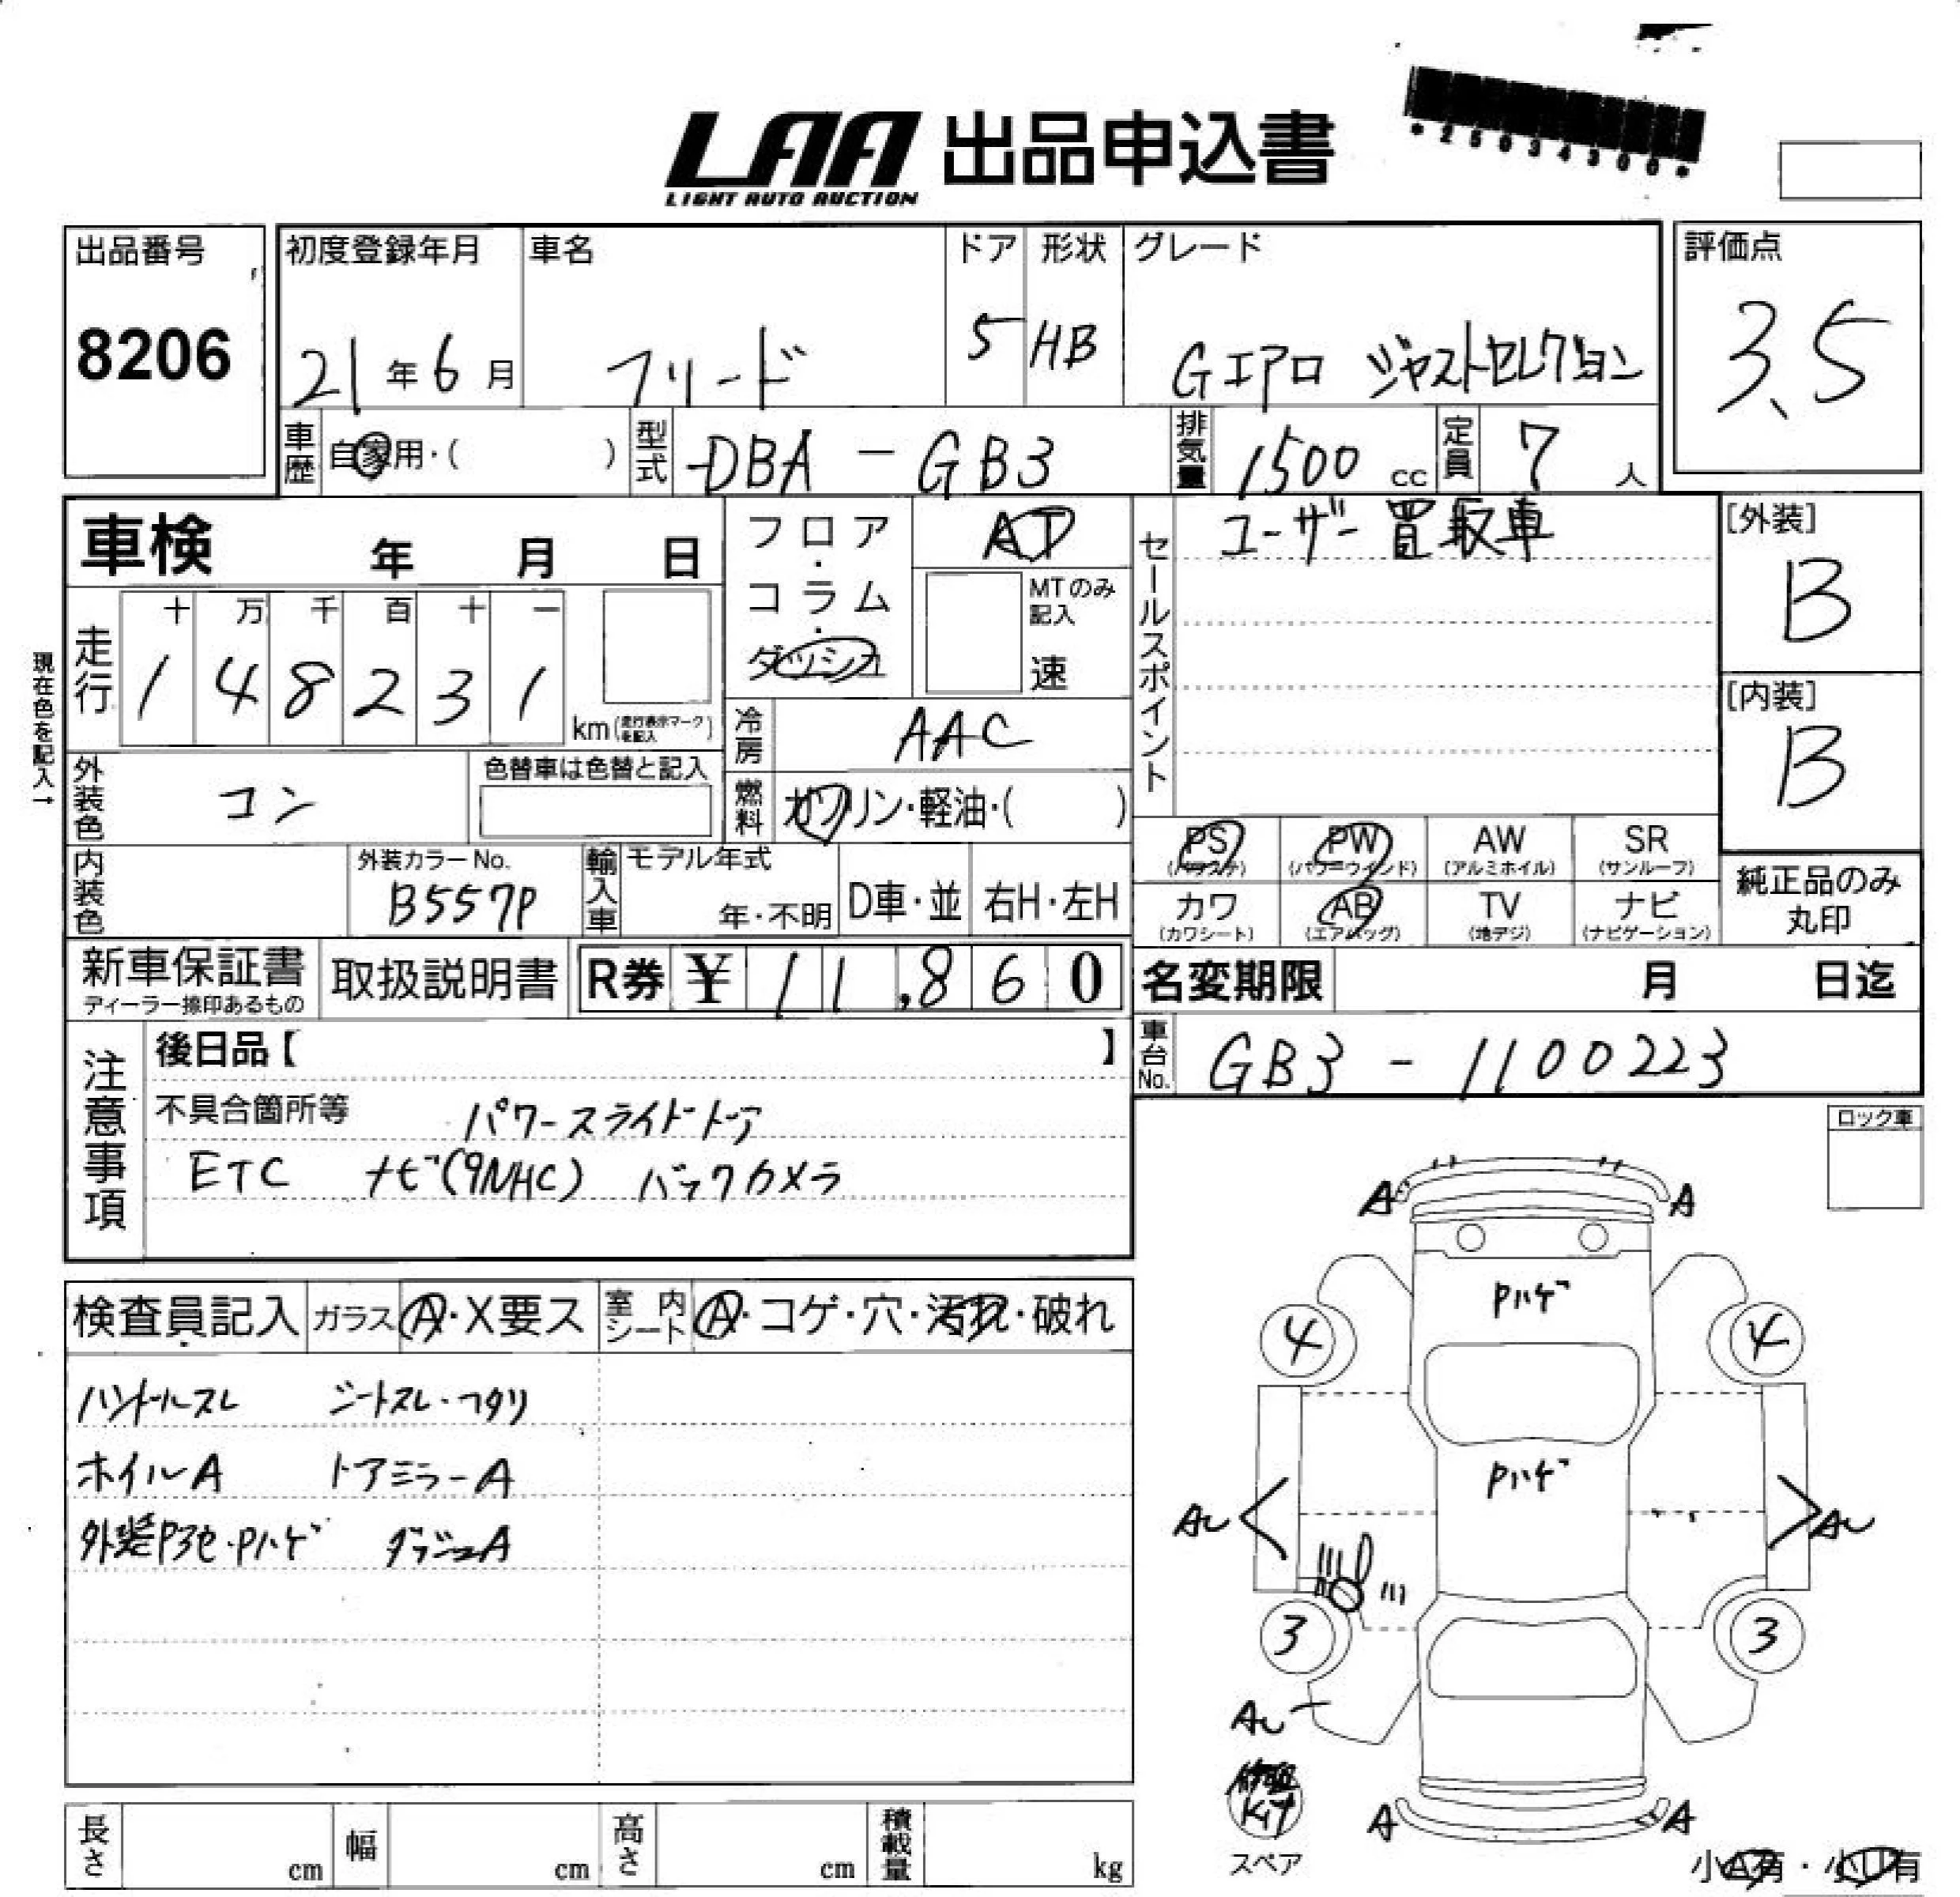 *25034300*
LAA 出品申込書
LIGHT AUTO AUCTION
出品番号
8206
初度登録年月
21年6月
車名
フリード
ドア
5
形状
HB
グレード
Gエアロ ジャストセレクション
評価点
3.5
車歴
自家用・( )
型式
DBA-GB3
排気量
1500cc
定員
7人
車検 年 月 日
フロア・コラム・ダッシュ
AT
MTのみ記入
速
セールスポイント
ユーザー買取車
[外装]
B
[内装]
B
現在色を記入→
走行
十 万 千 百 十 一
1 4 8 2 3 1
km(走行表示マークを記入)
冷房
AAC
外装色
コン
色替車は色替と記入
燃料
ガソリン・軽油・( )
PS AW SR
PW
(パワステ) (パワーウインド) (アルミホイル) (サンルーフ)
カワ AB TV ナビ
(カワシート) (エアバッグ) (地デジ) (ナビゲーション)
純正品のみ
丸印
内装色
外装カラーNo.
B557P
輸入車
モデル年式
年・不明
D車・並
右H・左H
新車保証書
ディーラー捺印あるもの
取扱説明書
R券 ¥11,860
名変期限 月 日迄
車台No.
GB3-1100223
注意事項
後日品【 】
不具合箇所等 パワースライドドア
ETC ナビ(9NHC) バックカメラ
ロック車
検査員記入
ガラス A・X要ス
室内シート A・コゲ・穴・汚れ・破れ
ハンドルスレ シートスレ・ヘタリ
ホイルA ドアミラーA
外装Pｽﾚ・Pハゲ ダッシュA
A A
Pハゲ
4 4
Pハゲ
AU AU
3 3
AU
修理
Kit
スペア
A A
小A有・小U有
長さ cm
幅 cm
高さ cm
積載量 kg